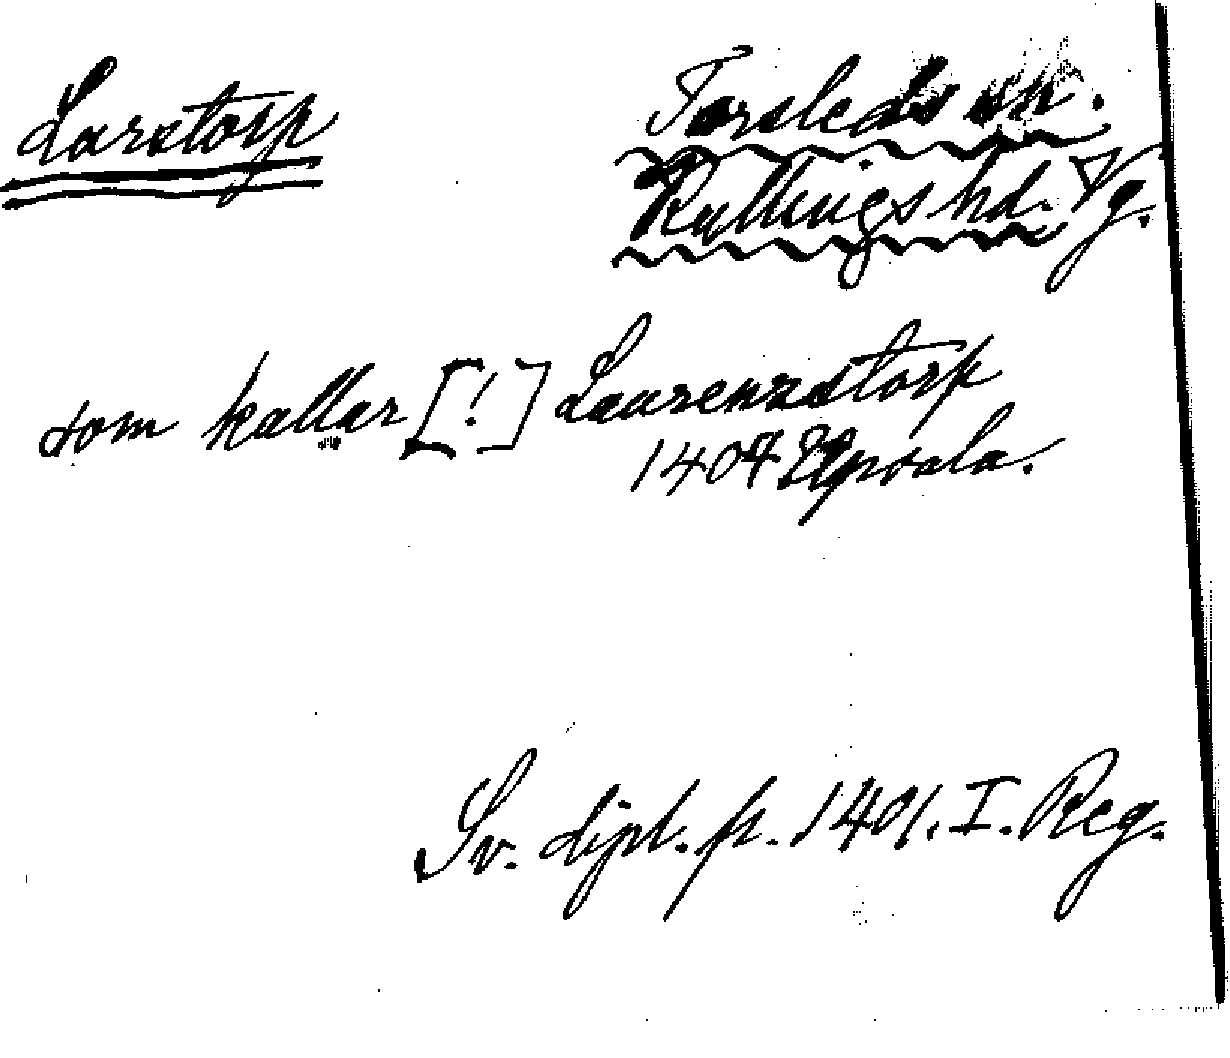 Larstorp
Torsleds sn.
Kullings hd. Vg.
som kallar [!] Laurenzstorp
1407 Upsala.
Sv. dipl. fr. 1401. I. Reg.